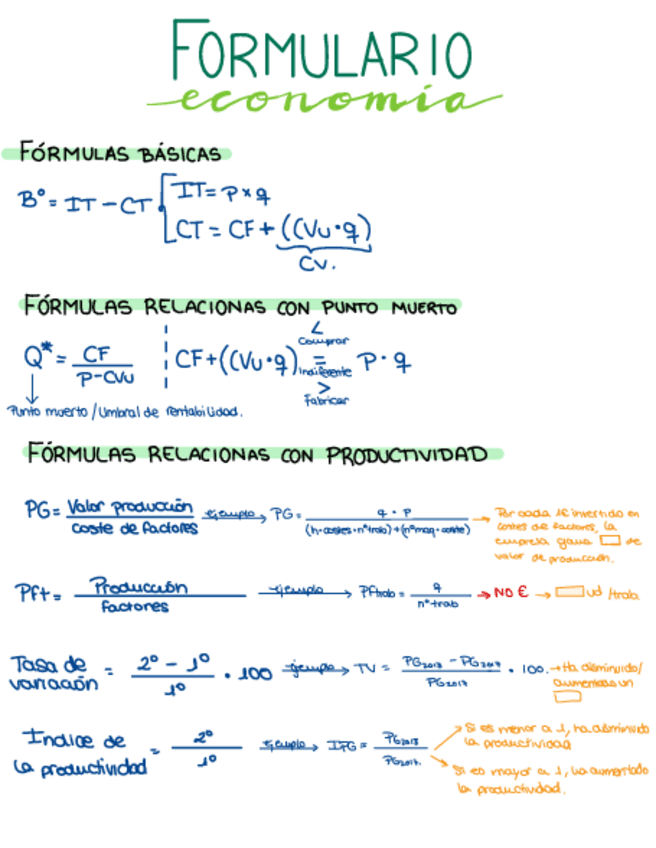 FORMULARIO
economía
FÓRMULAS BÁSICAS
Bº = IT - CT
IT = P x q
CT = CF + ((Vu · q)
CV.
FÓRMULAS RELACIONAS CON PUNTO MUERTO
Q* = CF / P - CVu
Punto muerto / Umbral de rentabilidad.
CF + ((Vu · q) = P · q
< Comprar
= indiferente
> Fabricar
FÓRMULAS RELACIONAS CON PRODUCTIVIDAD
PG = Valor producción / coste de factores ejemplo → PG = q · P / (h·costes·nºtrab) + (nºmaq·coste)
→ Por cada 1€ invertido en
costes de factores, la
empresa gana ▭ de
valor de producción.
Pft = Producción / factores ejemplo → Pftrab = q / nº trab → NO € → ▭ ud /trab.
Tasa de variación = 2º - 1º / 1º · 100 ejemplo → TV = PG2018 - PG2017 / PG2017 · 100. → Ha disminuido/
aumentado un
▭
Indice de la productividad = 2º / 1º ejemplo → IPG = PG2018 / PG2017.
Si es menor a 1, ha disminuido
la productividad
Si es mayor a 1, ha aumentado
la productividad.